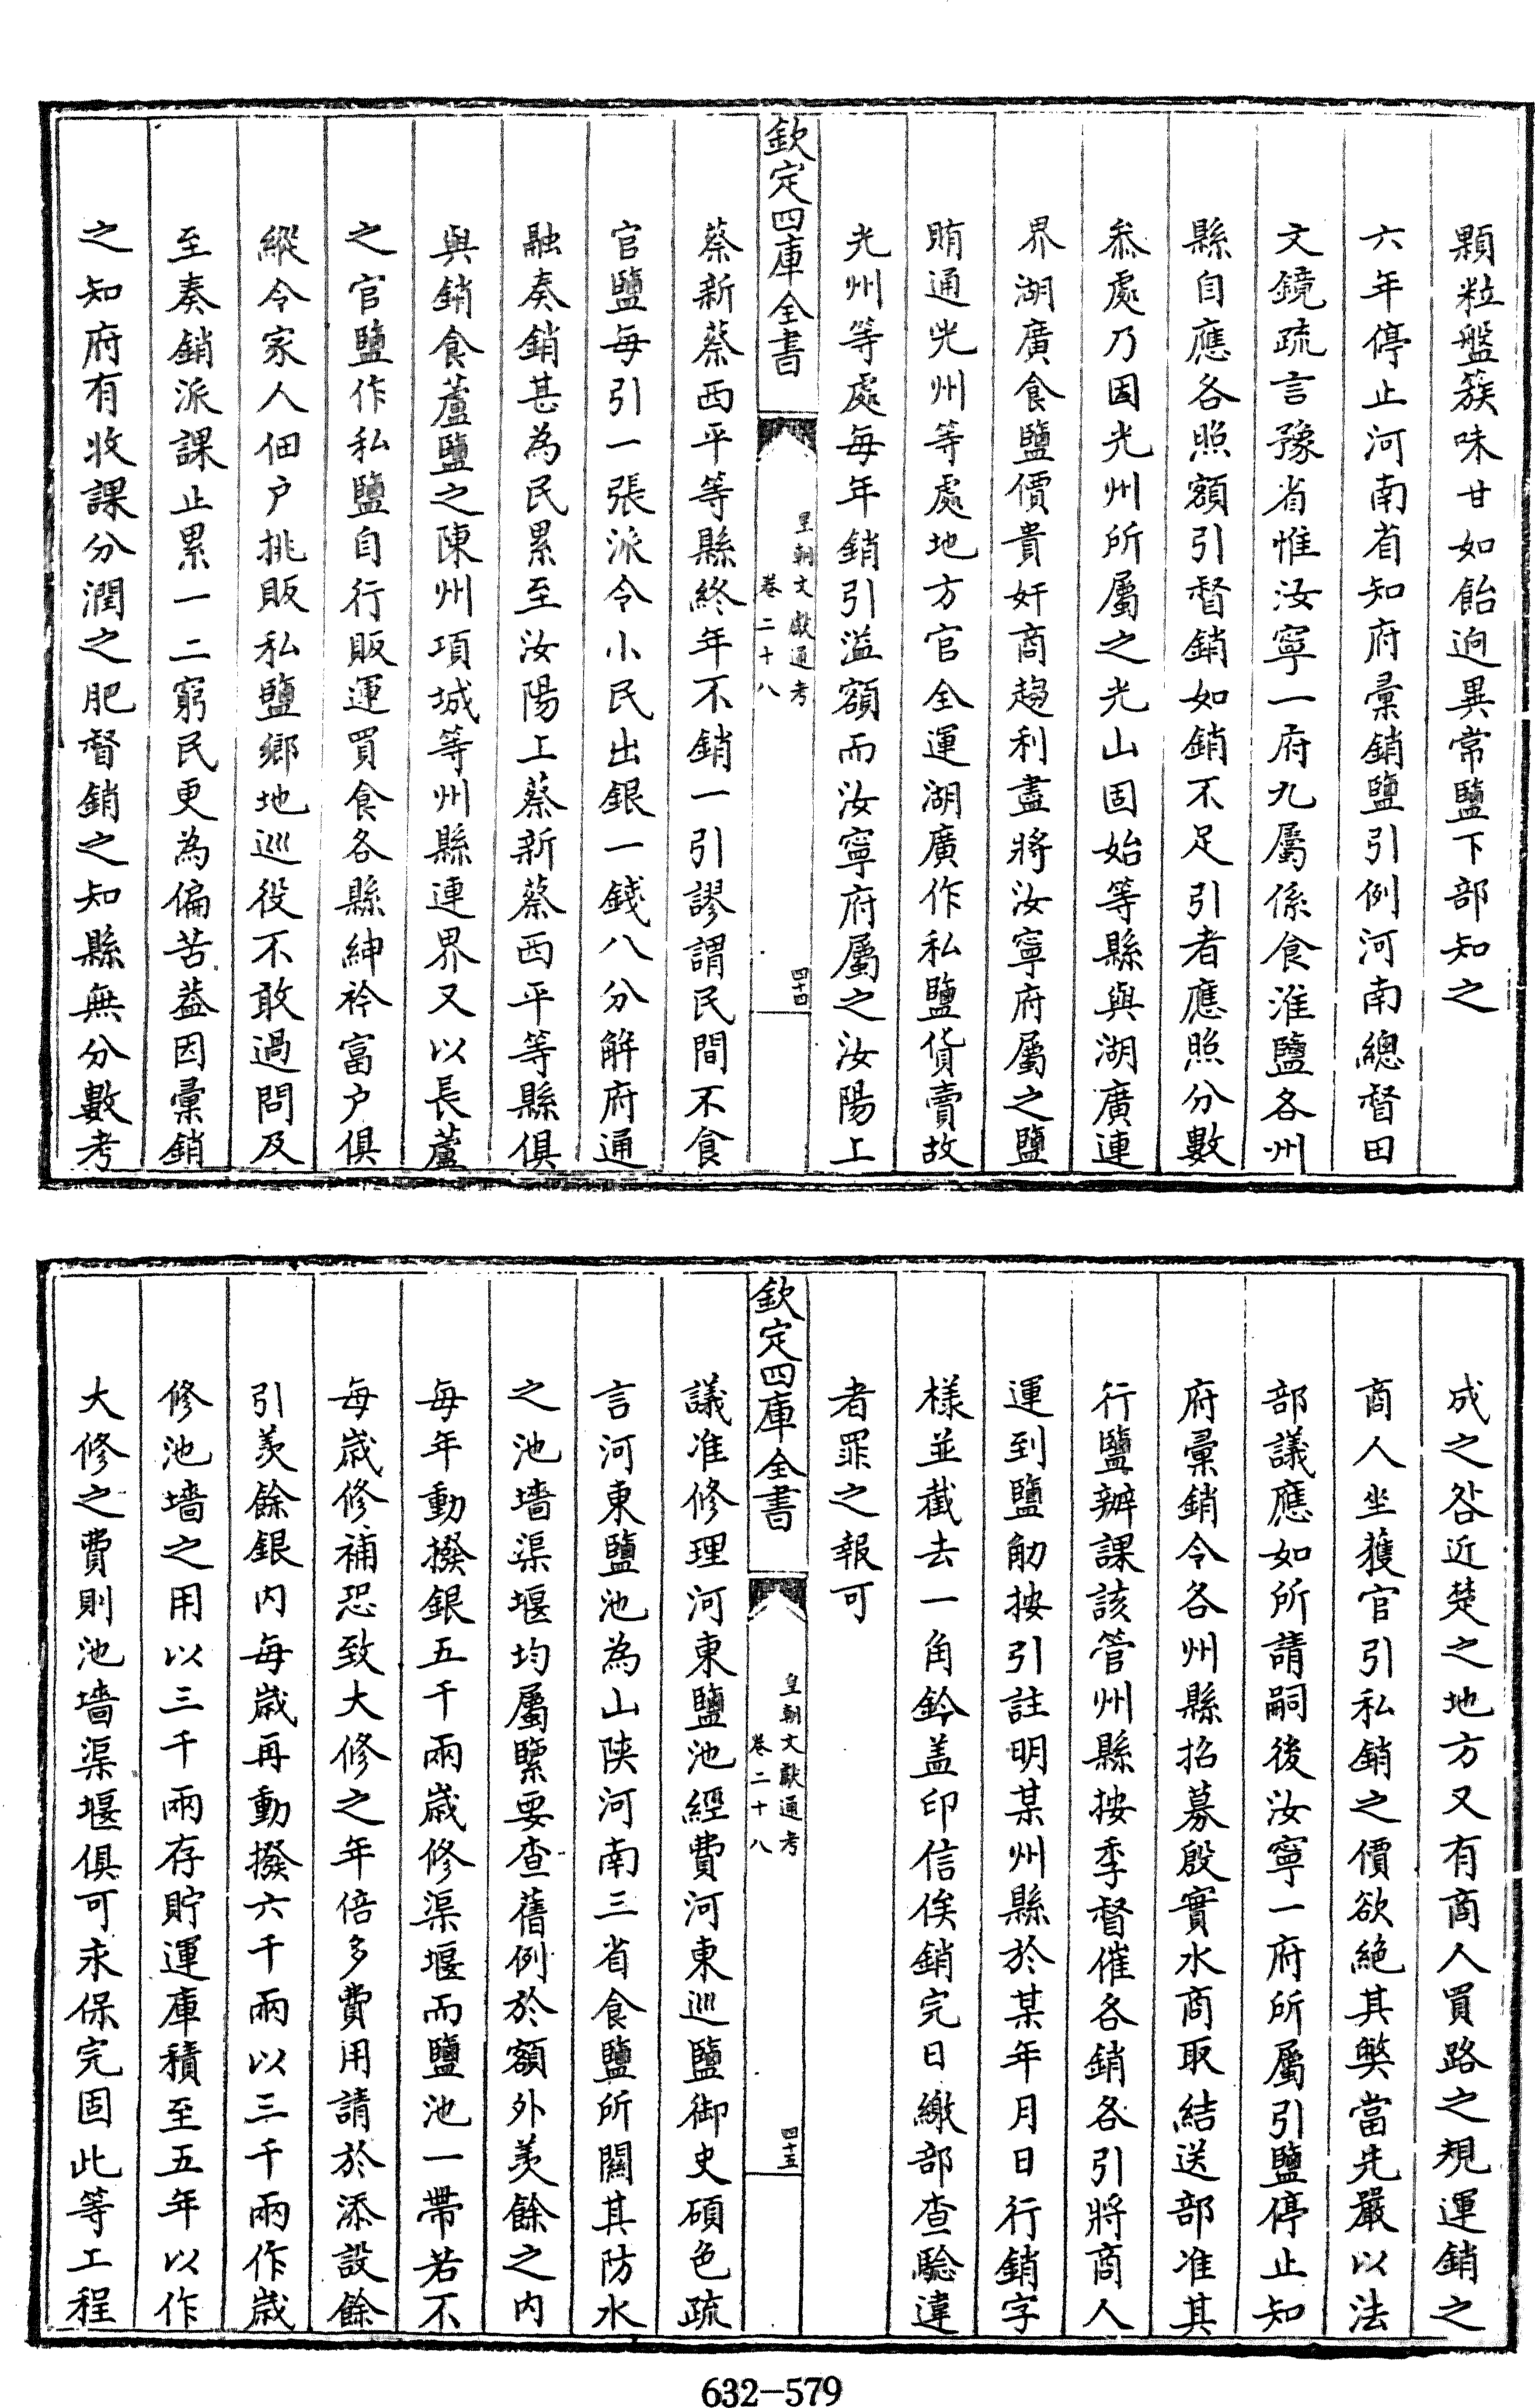 顆粒盤簇味甘如飴逈異常鹽下部知之
六年停止河南省知府彙銷鹽引例河南總督田
文鏡疏言豫省惟汝寧一府九屬係食淮鹽各州
縣自應各照額引督銷如銷不足引者應照分數
叅處乃因光州所屬之光山固始等縣與湖廣連
界湖廣食鹽價貴奸商趨利盡將汝寧府屬之鹽
賄通光州等處地方官全運湖廣作私鹽貨賣故
光州等處每年銷引溢額而汝寧府屬之汝陽上
欽定四庫全書
皇朝文獻通考
卷二十八
四十四
蔡新蔡西平等縣終年不銷一引謬謂民間不食
官鹽每引一張派令小民出銀一錢八分解府通
融奏銷甚為民累至汝陽上蔡新蔡西平等縣俱
與銷食蘆鹽之陳州項城等州縣連界又以長蘆
之官鹽作私鹽自行販運買食各縣紳衿富户俱
縱令家人佃户挑販私鹽鄉地巡役不敢過問及
至奏銷派課止累一二窮民更為偏苦葢因彙銷
之知府有收課分潤之肥督銷之知縣無分數考
成之咎近楚之地方又有商人買路之規運銷之
商人坐獲官引私銷之價欲絶其獘當先嚴以法
部議應如所請嗣後汝寧一府所屬引鹽停止知
府彙銷令各州縣招募殷實水商取結送部准其
行鹽辦課該管州縣按季督催各銷各引將商人
運到鹽觔按引註明某州縣於某年月日行銷字
様並截去一角鈐盖印信俟銷完日繳部查驗違
者罪之報可
欽定四庫全書
皇朝文獻通考
卷二十八
四十五
議准修理河東鹽池經費河東巡鹽御史碩色疏
言河東鹽池為山陝河南三省食鹽所闗其防水
之池墻渠堰均屬緊要查舊例於額外羡餘之内
每年動撥銀五千兩歳修渠堰而鹽池一帶若不
每歳修補恐致大修之年倍多費用請於添設餘
引羡餘銀内每歳再動撥六千兩以三千兩作歳
修池墻之用以三千兩存貯運庫積至五年以作
大修之費則池墻渠堰俱可永保完固此等工程
632-579